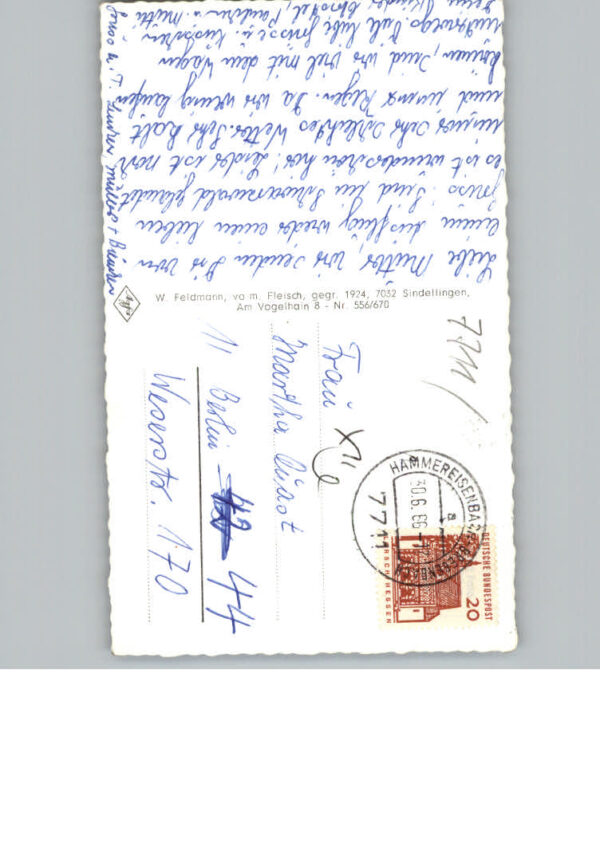 Liebe Mutter, wir senden Dir von
einem Ausflug wieder einen lieben
Gruss. Sind im Schwarzwald gelandet
es ist wunderschön hier! Leider ist noch
immer sehr schlechtes Wetter. Sehr kalt
und immer Regen. Da wir wenig laufen
können, sind wir viel mit dem Wagen
unterwegs. Viele liebe Grüsse u. Küsschen
W. Feldmann, vorm. Fleisch, gegr. 1924, 7032 Sindelfingen,
Am Vogelhain 8 - Nr. 556/670
Agfa
7711/
HAMMEREISENBACH
30.6.66-7
a
7711
DEUTSCHE BUNDESPOST
20
LORSCH/HESSEN
Frau
Martha
1 Berlin 44
Weserstr. 170